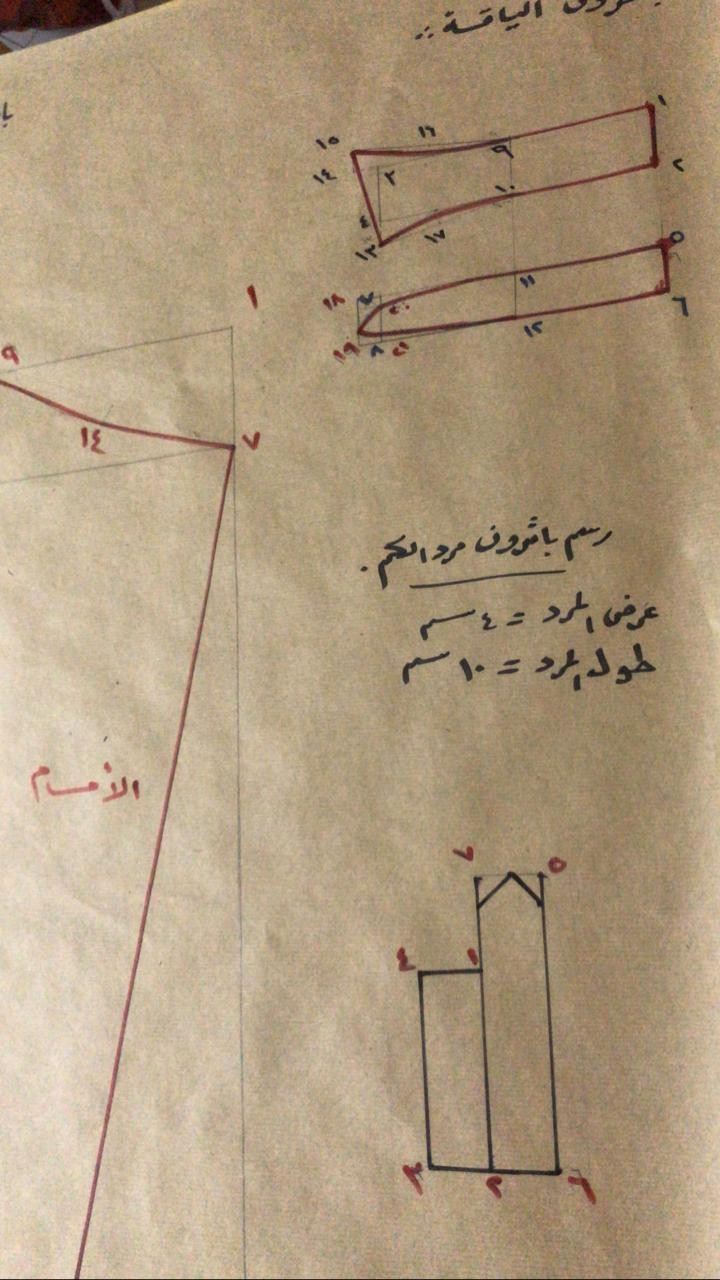 الياقة ::
١
١٦
١٥
٩
٢
١٤
٢
١٠
٣
١٧
١٣
٥
١١
١٨
٤
٢٠
٦
١٢
١٩
٨
٢١
١
٩
١٤
٧
رسم باثرون مرد الكم .
عرض المرد = ٤ سم
طول المرد = ١٠ سم
الأمام
٧
٥
٤
١
٣
٢
٦